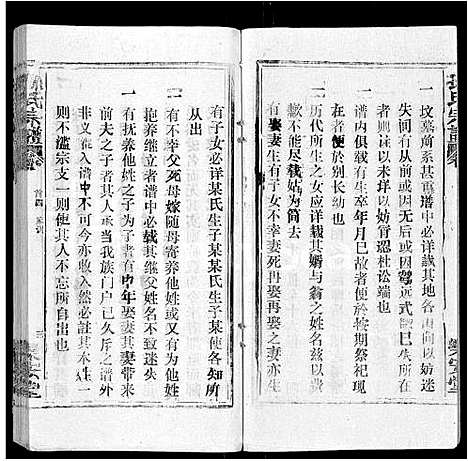 一坟墓前系甚重谱中必详载其地名四向以妨迷
失间有从前或因无后或因驾远式微已失所在
者则疑以未详以妨冒混杜讼端也
一谱内俱有生卒年月已故者便于按期祭祀现
在者便于别长幼也
一历代所生之女应详载其婿与翁之姓名但世远
辙不能尽载姑为简去
一有娶妻生有子女不幸妻死再娶再娶之妻亦生
有子女必详某氏生子某某氏生子某使各知所
从出
一有不幸父死母嫁随母寄养他姓或又有为他姓
抱养继立者谱中必载其继父姓名不致迷失
一有抚养他姓之子为子者有中年娶妻其妻带来
前夫之子其人承当我族门户已久斥之谱外
非义使入谱中不可今亦收入然必註其本姓一
则不滥宗支一则使其人不忘所自出也
首四 家训
三